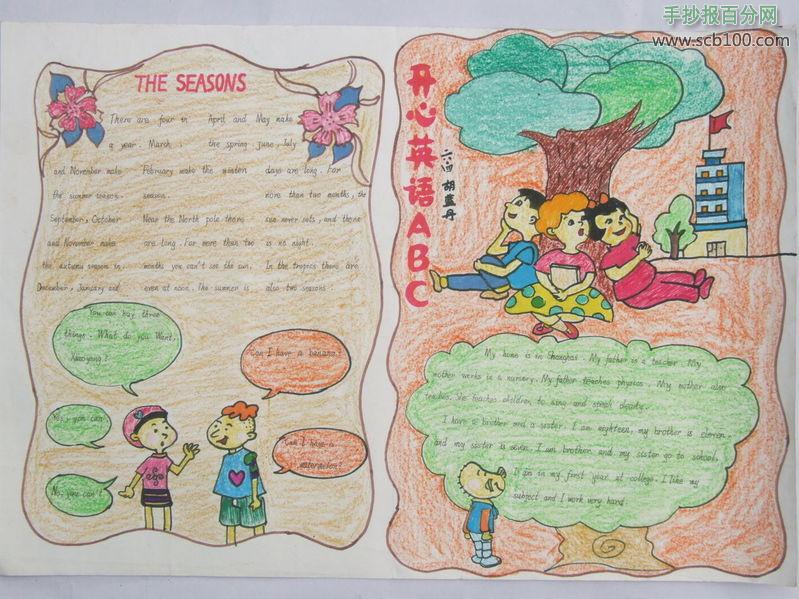 手抄报百分网
www.scb100.com
THE SEASONS
There are four in April and May make
a year. March the spring june, July
and November make February make the winter days are long. For
the summer season. season. more than two months, the
September, October Near the North pole there sun never sets, and there
and November make are long. For more than two is no night.
the autumn season in. months you can't see the sun, In the tropics there are
December, January and even at noon. The summer is also two seasons
You can buy three
things. What do you Want,
Can I have a banana?
Yes, you can
Can I have a
watermelon?
No, you can't
开心英语ABC
六.四 胡
丹
My home is in Shanghai. My father is a teacher. My
mother works is a nursery. My father teaches physics. My mother also
teaches. She teaches children to sing and speak
I have a brother and a sister. I am eighteen, my brother is eleven
and my sister is seven. I am brother and my sister go to school,
I am in my first year at college. I like my
subject and I work very hand.